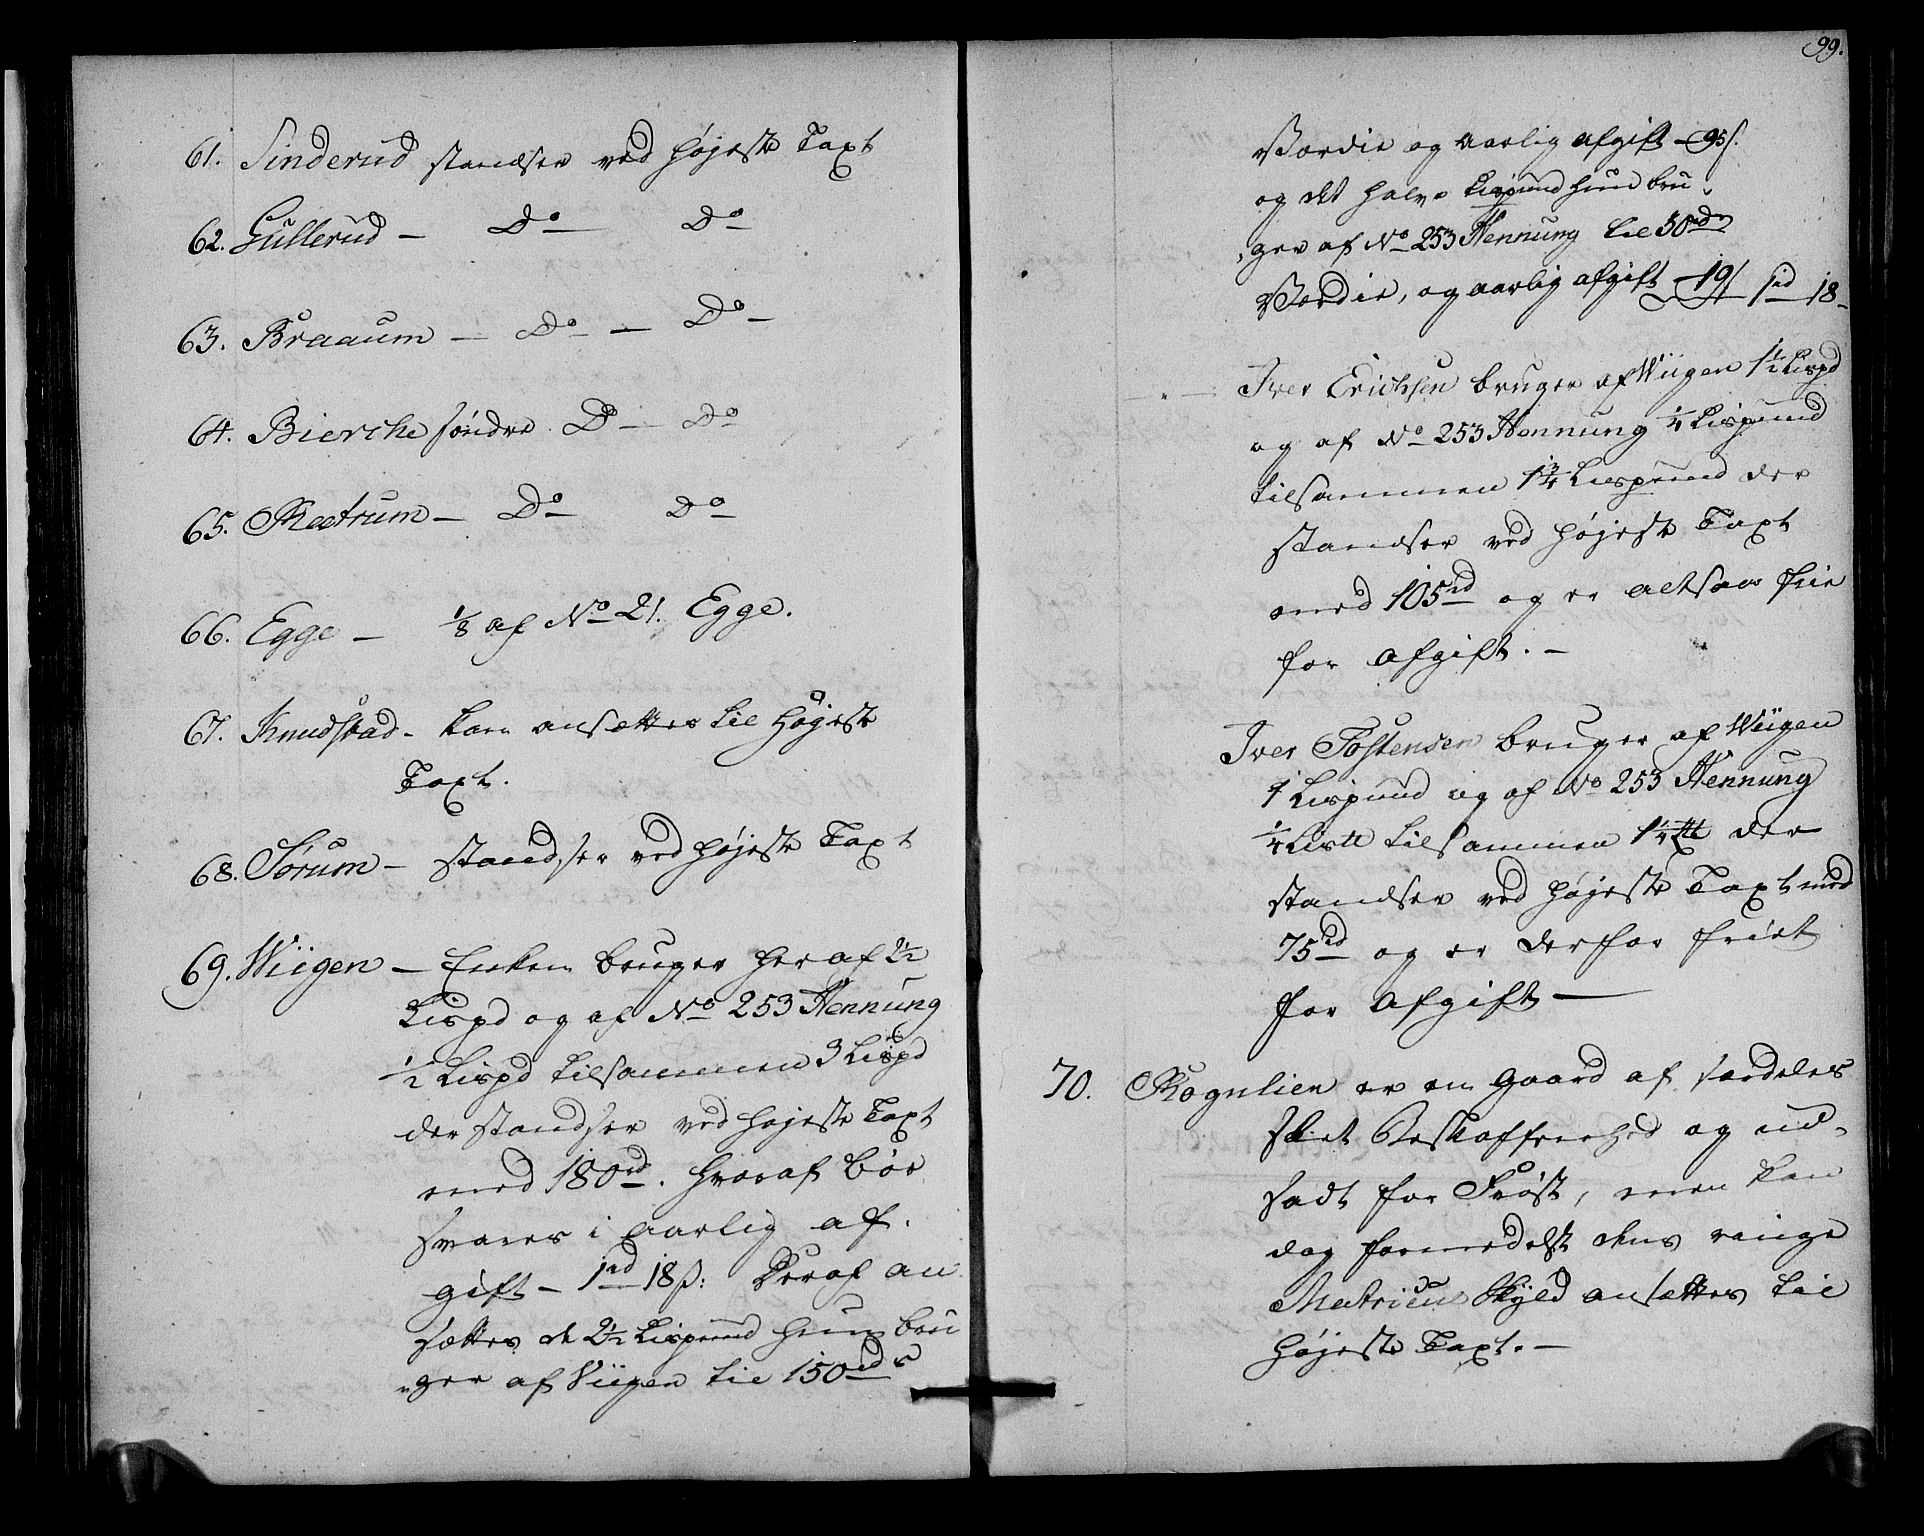 61. Sinderud standser ved højeste Taxt
62. Gullerud – Do – Do
63. Braaum – Do – Do –
64. Biercke søndre Do – Do
65. Skatrum – Do – Do
66. Egge – 1/8 af No 21. Egge.
67. Knudstad – kan ansættes til Højeste
Taxt.
68. Sørum – standser ved højeste Taxt
69. Wiigen – Enken bruger heraf 2½
Lispd og af No 253 Hennung
½ Lispd tilsammen 3 Lispd
der standser ved højeste Taxt
med 180rd. hvoraf bør
svares i aarlig af-
gift – 1rd 18ß: Deraf an
sættes de 2½ Lispund hun bru
„ger af Wiigen til 150rds
99.
Værdie og aarlig afgift – 95ß.
og det halve Lispund hun bru-
„ger af No 253 Hennung til 30rdr
Værdie, og aarlig afgift – 19ß 1rd 18 –
Iver Erichsen bruger af Wiigen 1½ Lispd
og af No 253 Hennung ¼ Lispund
tilsammen 1¾ Lispund der
standser ved højeste Taxt
med 105rd og er altsaa frie
for afgift. –
Iver Tostensen bruger af Wiigen
1 Lispund og af No 253 Hennung
¼ Lis℔ tilsammen 1¼ ℔ der
standser ved højeste Taxt med
75rd og er derfor friet
for afgift –
70. Skognlien er en gaard af særdeles
slet Beskaffenhed og ud-
sadt for Frøst, men kan
dog formedelst dens ringe
Matricul Skyld ansættes til
højeste Taxt. –